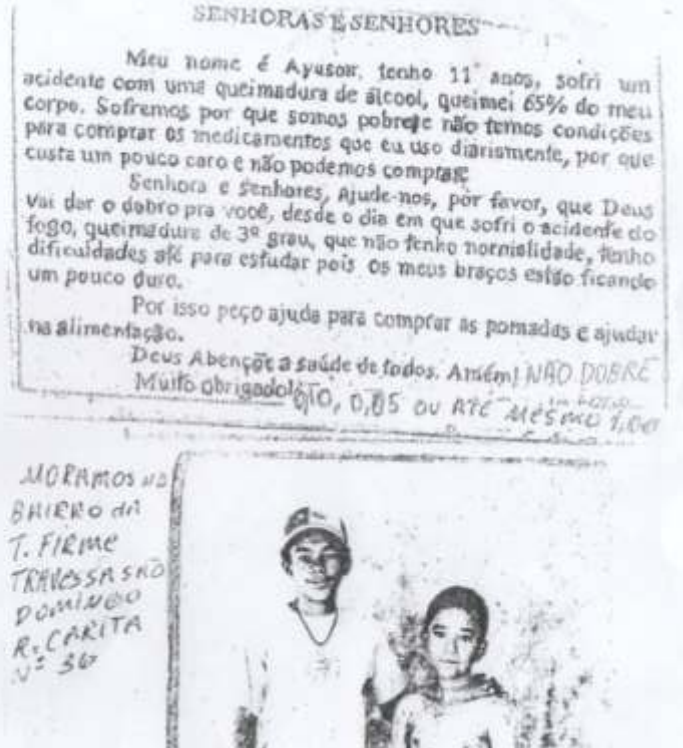 SENHORAS E SENHORES
Meu nome é Ayuson, tenho 11 anos, sofri um
acidente com uma queimadura de álcool, queimei 65% do meu
corpo. Sofremos por que somos pobre e não temos condições
para comprar os medicamentos que eu uso diariamente, por que
custa um pouco caro e não podemos comprar.
Senhora e senhores, ajude-nos, por favor, que Deus
vai dar o dobro pra você, desde o dia em que sofri o acidente do
fogo, queimadura de 3º grau, que não tenho normalidade, tenho
dificuldades até para estudar pois os meus braços estão ficando
um pouco duro.
Por isso peço ajuda para comprar as pomadas e ajudar
na alimentação.
Deus Abençõe a saúde de todos. Amém! NÃO DOBRE
Muito obrigado! 0,10, 0,05 OU ATÉ MESMO 1,00
MORAMOS NO
BAIRRO dA
T. FIRME
TRAVESSA SÃO
DOMINGO
R. CARITA
Nº 36